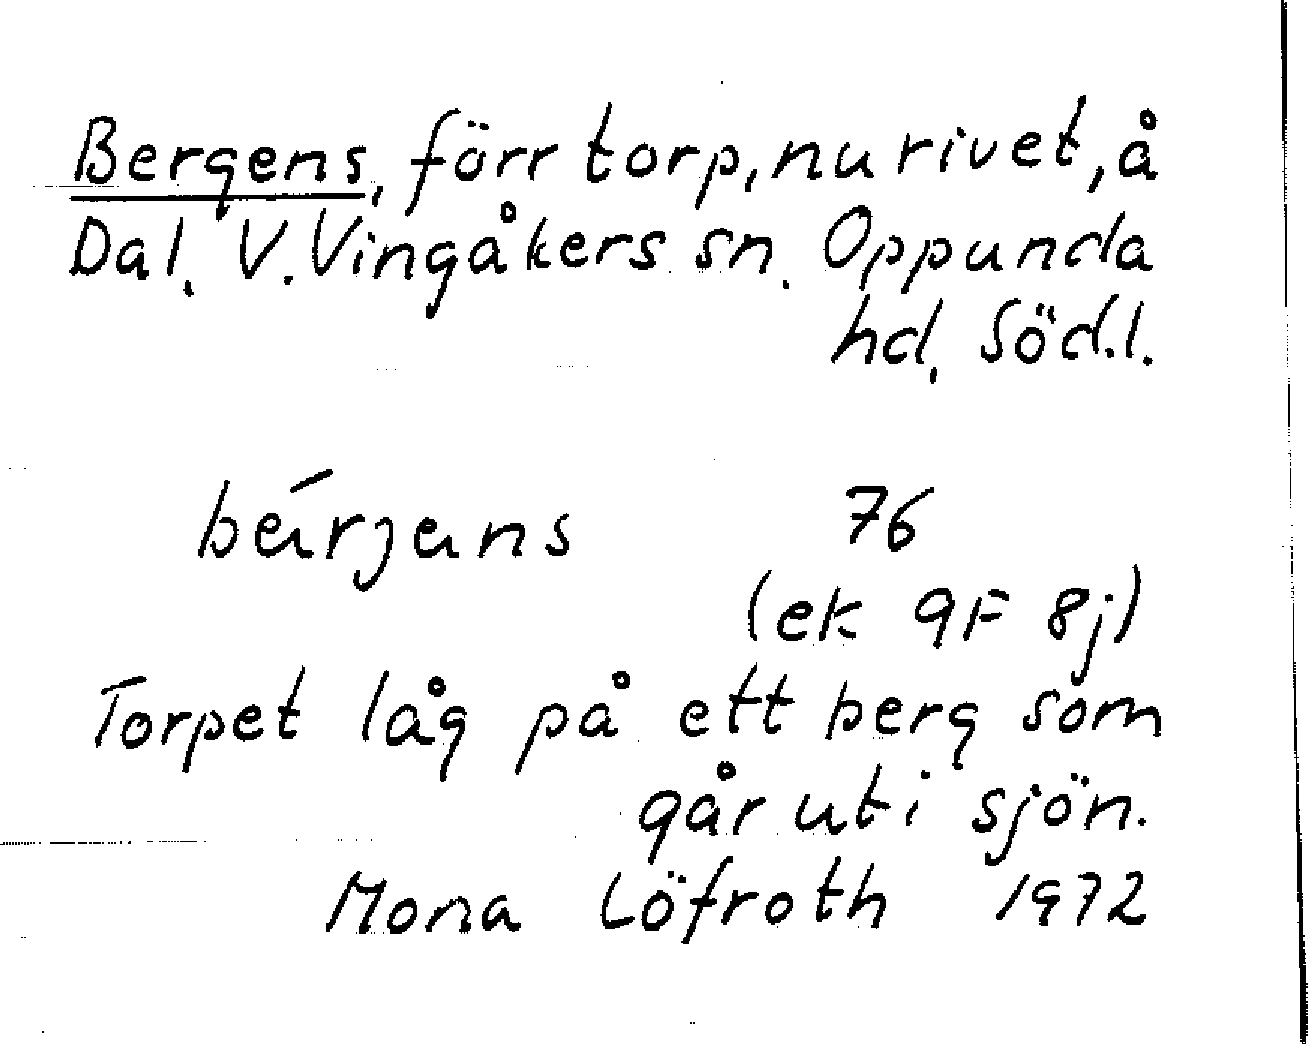 Bergens, förr torp, nu rivet, å
Dal, V. Vingåkers sn. Oppunda
hd, Söd.l.
bärjans 76
(ek 9F 8j)
Torpet låg på ett berg som
går ut i sjön.
Mona Löfroth 1972